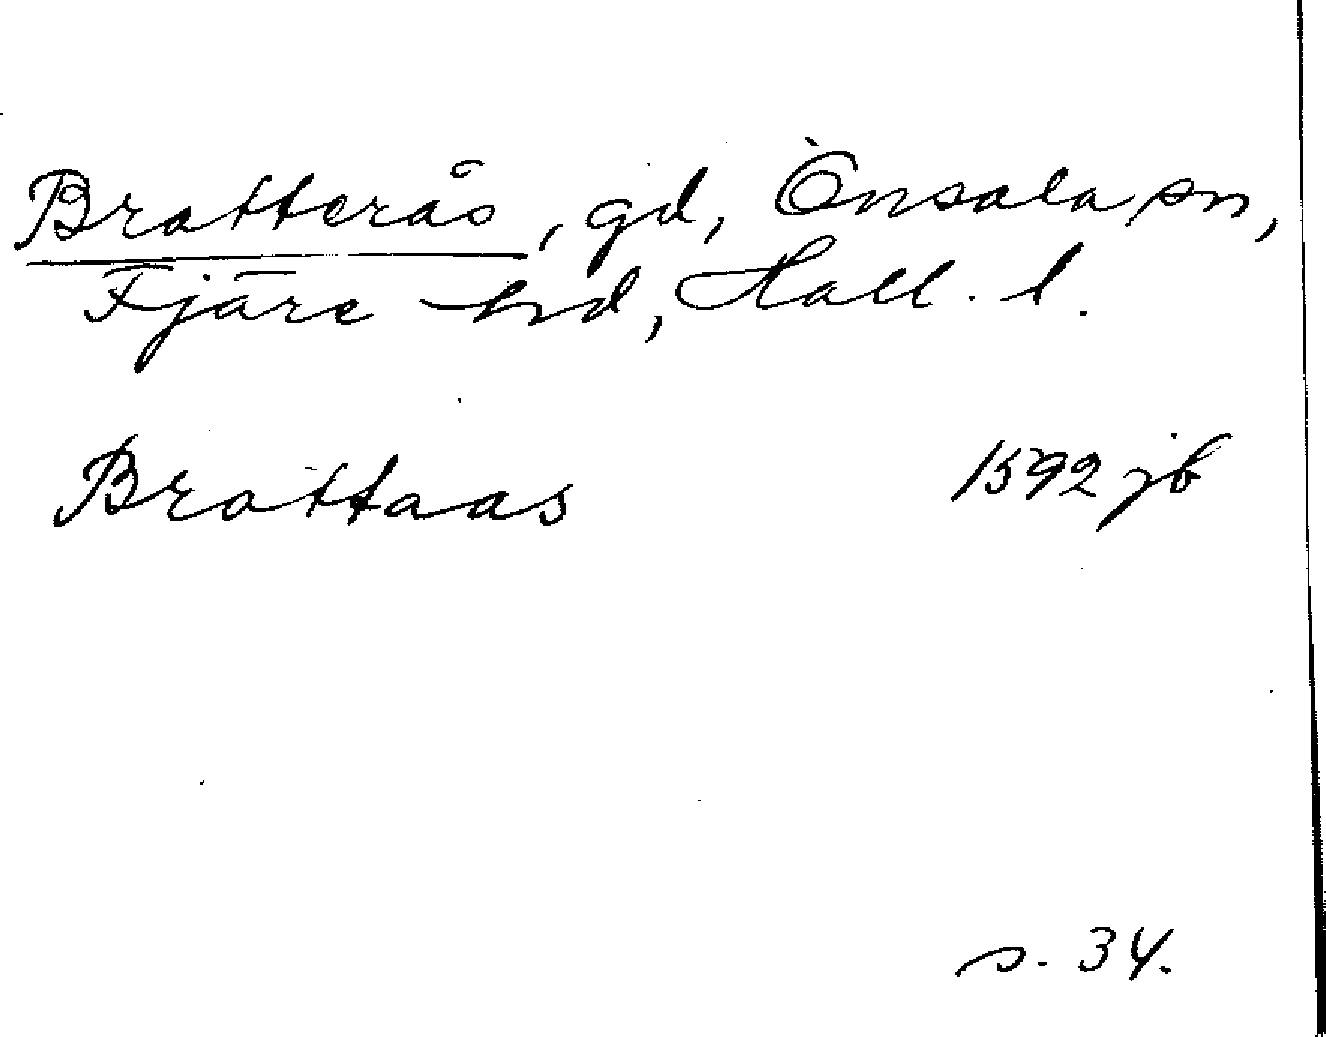 Bratterås, gd, Onsala sn,
Fjäre hd, Hall. l.
Brattaas 1592 jb
s. 34.